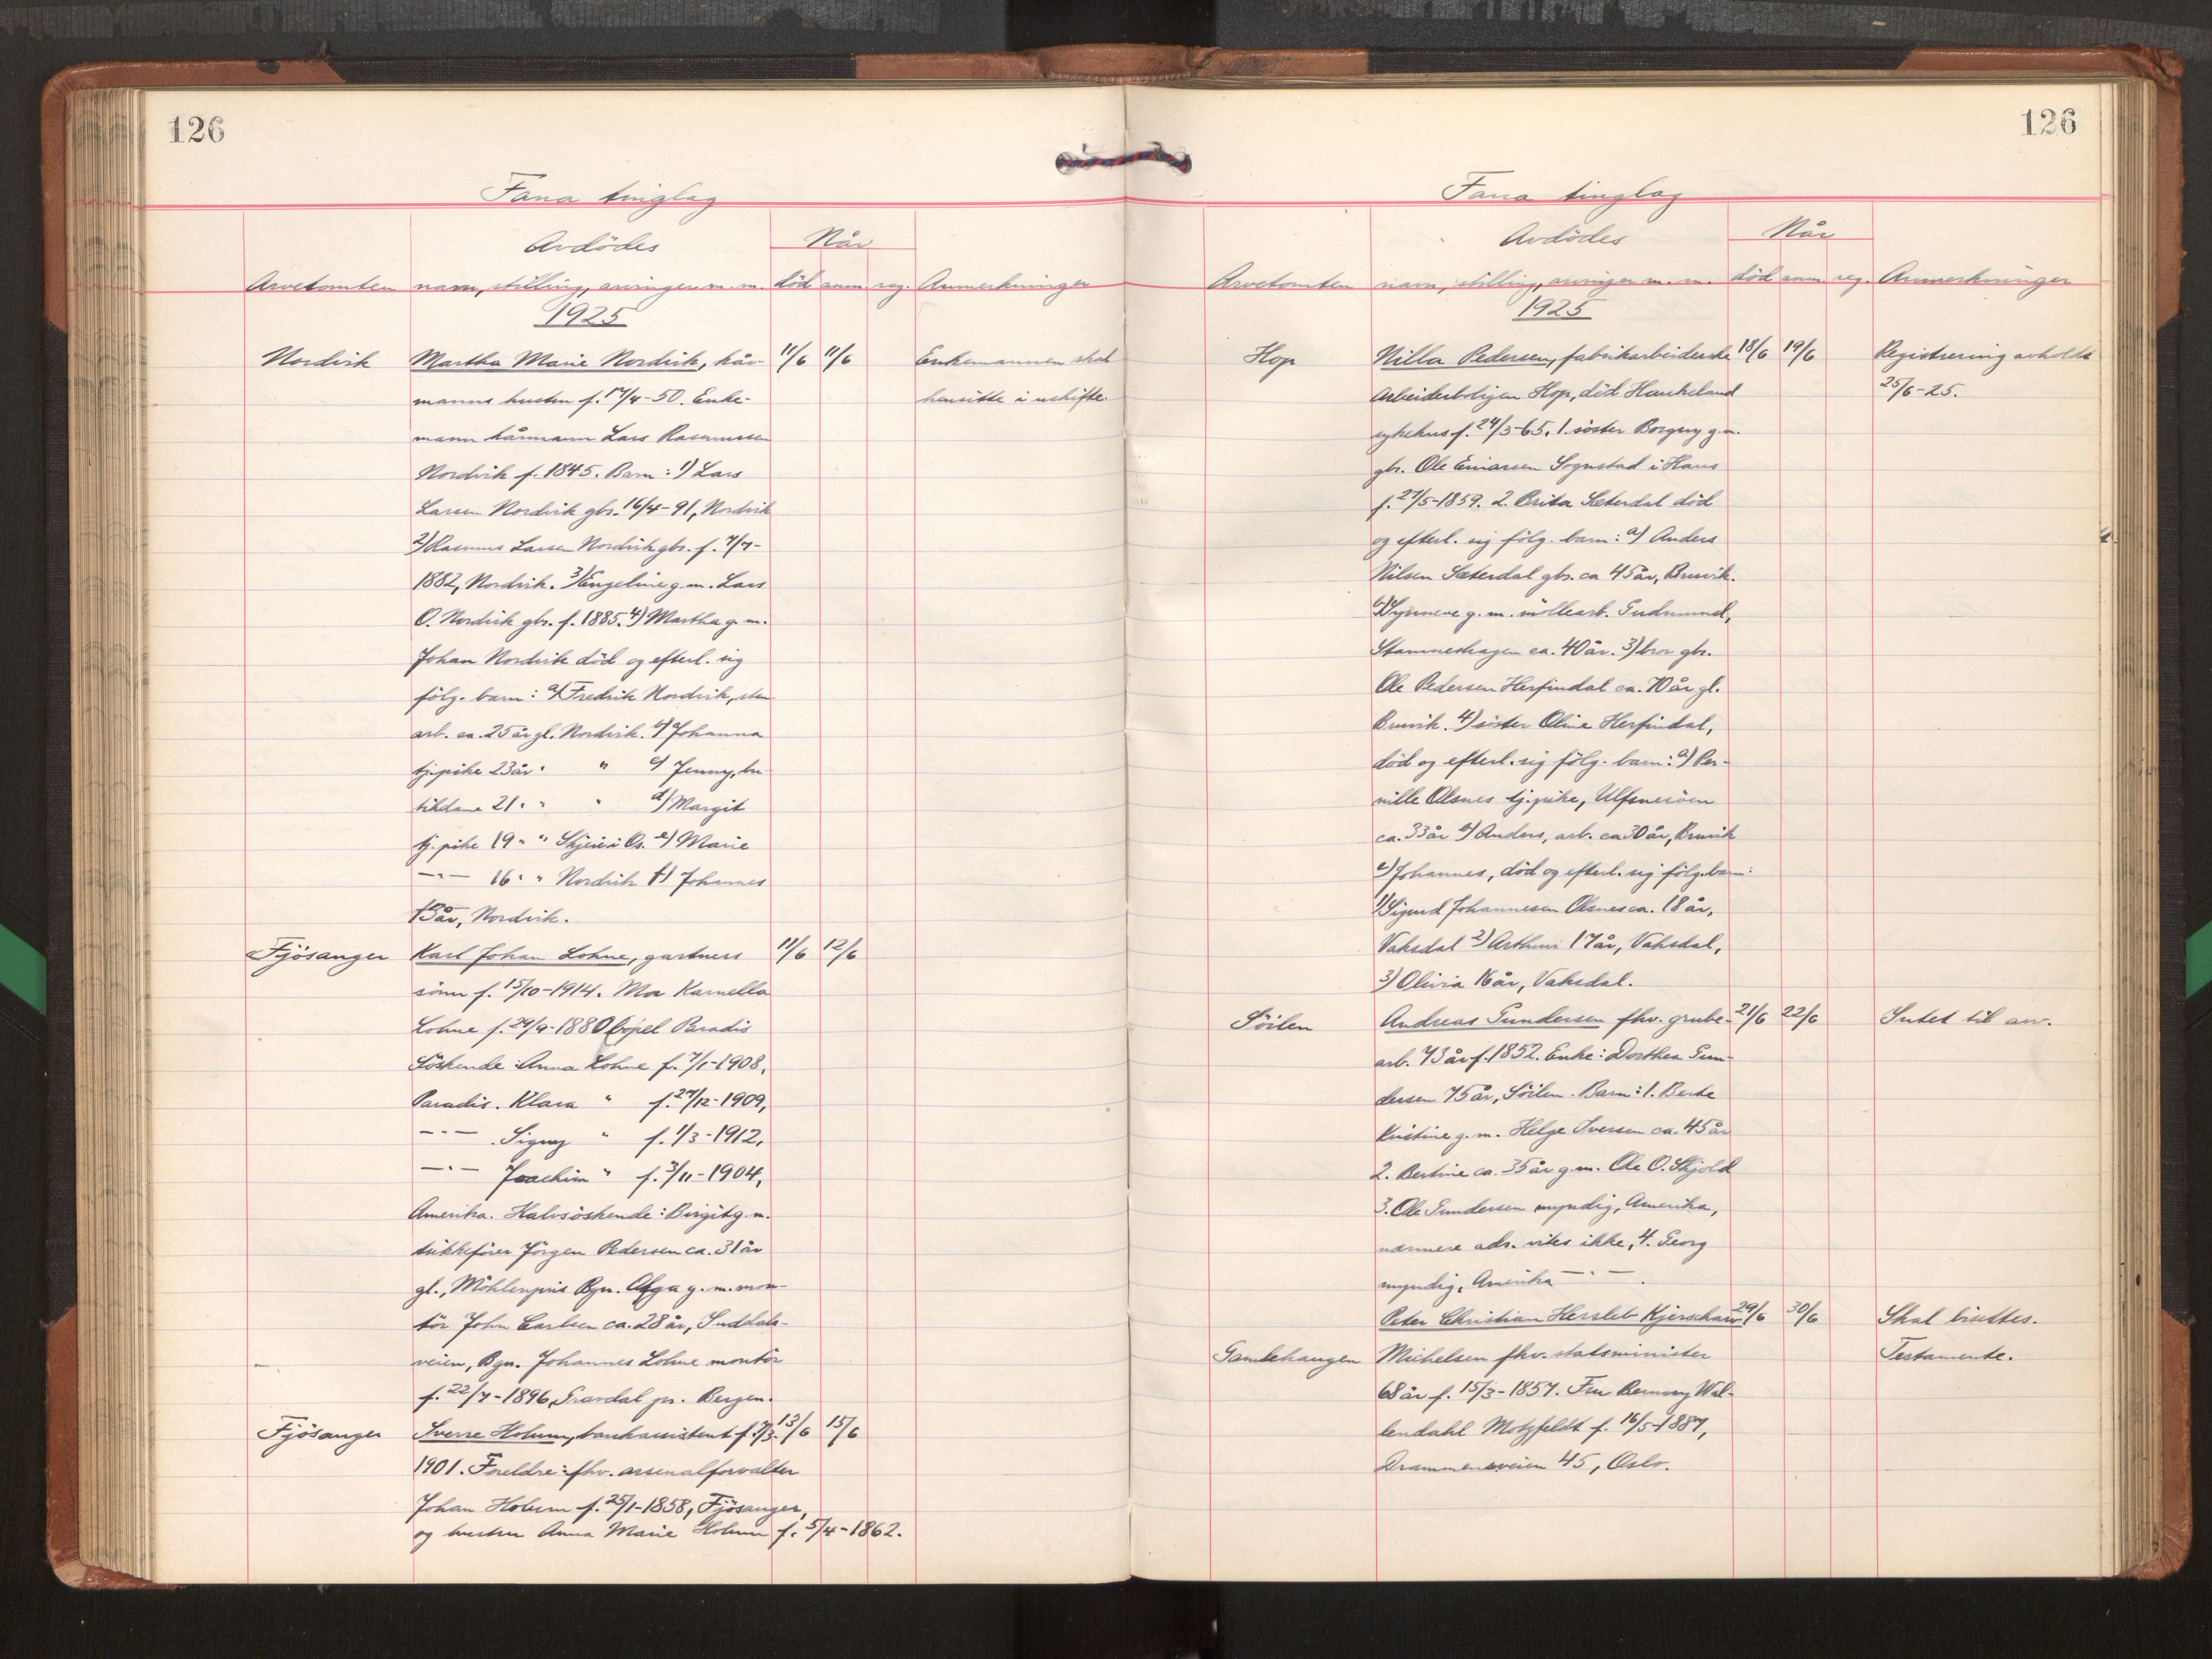 126
Fana tinglag
Avdödes
Når
Arvetomten navn, stilling, arvinger m. m. död anm. reg. Anmerkninger
1925
Nordvik Martha Marie Nordvik, kår- 11/6 11/6 Enkemannen skal
manns hustru f. 17/4-50. Enke- hensitte i uskifte.
mann kårmann Lars Rasmussen
Nordvik f. 1845. Barn: 1) Lars
Larsen Nordvik gbr. 16/4-91, Nordvik
2) Rasmus Larsen Nordvik gbr. f. 7/7-
1882, Nordvik. 3) Engeline g. m. Lars
O. Nordvik gbr. f. 1885. 4) Martha g. m.
Johan Nordvik död og efterl. sig
fölg. barn: a) Fredrik Nordvik, sten
arb. ca. 25 år gl. Nordvik. b) Johanna
tj. pike 23 år " " c) Jenny, bu-
tikdame 21 " " " d) Margit
tj. pike 19 " " Skjeie i Os. e) Marie
—"— 16 " " Nordvik f) Johannes
13 år, Nordvik.
Fjösanger Karl Johan Lohne, gartners 11/6 12/6
sönn f. 15/10-1914. Mor Karnella
Lohne f. 29/9-1880 Paradis
Söskende: Anna Lohne f. 7/1-1908,
Paradis. Klara " f. 27/12-1909,
—"— . Signy " f. 1/3-1912,
—"— Joachim " f. 3/11-1904,
Amerika. Halvsöskende: Birgit g. m.
trikkeförer Jörgen Pedersen ca. 31 år
gl., Möhlenpris Bgn. Olga g. m. mon-
tör John Carlsen ca. 28 år,
veien, Bgn. Johannes Lohne montör
f. 22/7-1896, Gravdal pr. Bergen.
Fjösanger Sverre Holum, bankassistent f. 7/3 13/6 15/6
1901. Foreldre: fhv. arsenalforvalter
Johan Holum f. 25/1-1858, Fjösanger,
og hustru Anna Marie Holum f. 5/4-1862.
126
Fana tinglag
Avdödes
Når
Arvetomten navn, stilling, arvinger m. m. död anm. reg. Anmerkninger
1925
Hop Nilla Pedersen, fabrikarbeiderske 18/6 19/6 Registrering avholdt
Arbeiderboligen Hop, död Haukeland 25/6-25.
sykehus f. 24/3-65. 1. söster Borgny g. m.
gbr. Ole Einarsen Sognstad i Haus
f. 27/5-1859. 2. Brita Sæterdal död
og efterl. sig fölg. barn: a) Anders
Nilsen Sæterdal gbr. ca 45 år, Bruvik.
b) Synneve g. m. möllearb. Gudmund,
Stanneshagen ca. 40 år. 3) bror gbr.
Ole Pedersen Herfindal ca. 70 år gl.
Bruvik. 4) söster Oline Herfindal,
död og efterl. sig fölg. barn: a) Per-
nille Olsnes tj. pike, Ulfsnesöen
ca. 33 år b) Anders, arb. ca 30 år, Bruvik
c) Johannes, död og efterl. sig fölg. barn:
1) Sigurd Johannesen Olsnes ca. 18 år,
Vaksdal 2) Arthur 17 år, Vaksdal,
3) Olivia 16 år, Vaksdal.
Söilen Andreas Gundersen fhv. grube- 21/6 22/6 Intet til arv.
arb. 73 år f. 1852. Enke: Dorthea Gun-
dersen 75 år, Söilen. Barn: 1. Berte
Kristine g. m. Helge Iversen ca. 45 år
2. Bertine ca. 35 år g. m. Ole O. Skjold
3. Ole Gundersen myndig, Amerika,
nærmere adr. vites ikke, 4. Georg
myndig, Amerika —"— .
Peter Christian Hersleb Kjerschow 29/6 30/6 Skal bisettes.
Gamlehaugen Michelsen fhv. statsminister Testamente.
68 år f. 15/3-1857. Fru Benny Wal-
lendahl Motzfeldt f. 16/5-1887,
Drammensveien 45, Oslo.